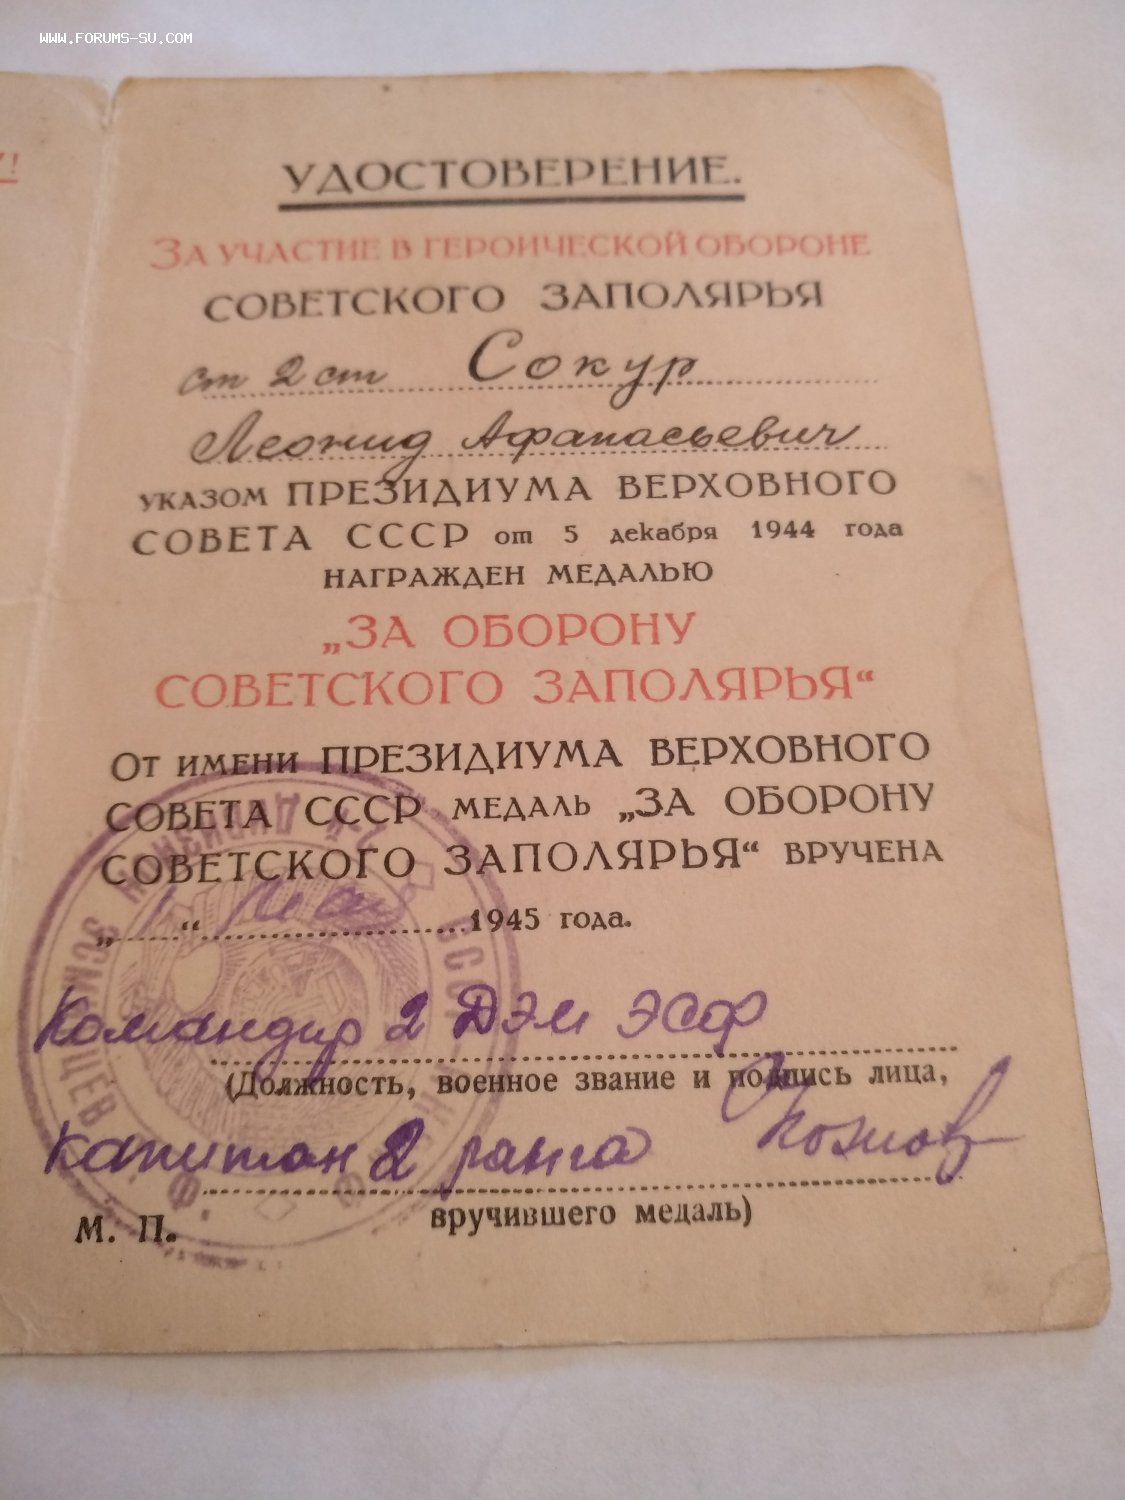 WWW.FORUMS-SU.COM
!
УДОСТОВЕРЕНИЕ.
ЗА УЧАСТИЕ В ГЕРОИЧЕСКОЙ ОБОРОНЕ
СОВЕТСКОГО ЗАПОЛЯРЬЯ
ст 2 ст Сокур
Леонид Афанасьевич
УКАЗОМ ПРЕЗИДИУМА ВЕРХОВНОГО
СОВЕТА СССР от 5 декабря 1944 года
НАГРАЖДЕН МЕДАЛЬЮ
„ЗА ОБОРОНУ
СОВЕТСКОГО ЗАПОЛЯРЬЯ“
ОТ ИМЕНИ ПРЕЗИДИУМА ВЕРХОВНОГО
СОВЕТА СССР МЕДАЛЬ „ЗА ОБОРОНУ
СОВЕТСКОГО ЗАПОЛЯРЬЯ“ ВРУЧЕНА
„1“ 1945 года.
Командир 2 ДЭМ ЭСФ
(Должность, военное звание и подпись лица,
Капитан 2 ранга
вручившего медаль)
М. П.